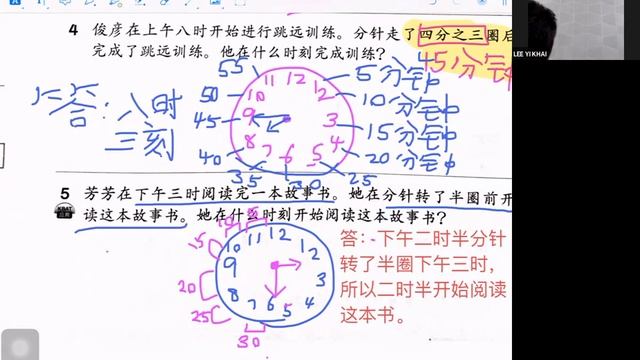 4 俊彦在上午八时开始进行跳远训练。分针走了四分之三圈后
完成了跳远训练。他在什么时刻完成训练？
45分钟
LEE YI KHAI
55
11 12
12
5分钟
答：八时
三刻
50
10
10分钟
45
9
3
15分钟
40
8
4
20分钟
35
7
6
5
30
25
5 芳芳在下午三时阅读完一本故事书。她在分针转了半圈前开
读这本故事书。她在什么时刻开始阅读这本故事书？
15
10
11
12
1
9
2
20
8
3
25
7
6
5
4
30
答：下午二时半分针
转了半圈下午三时，
所以二时半开始阅读
这本书。